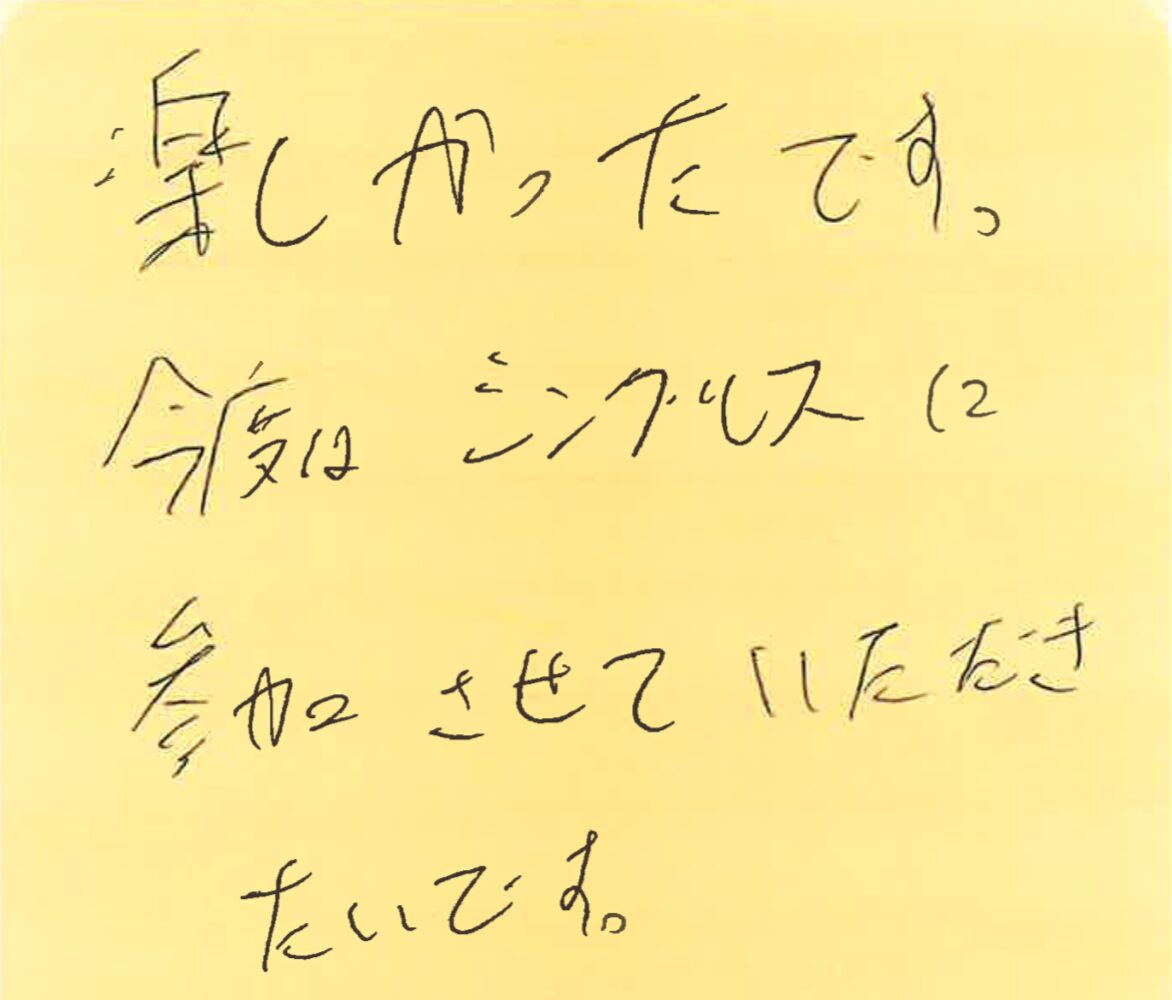 楽しかったです。
今度はシングルスに
参加させていただき
たいです。